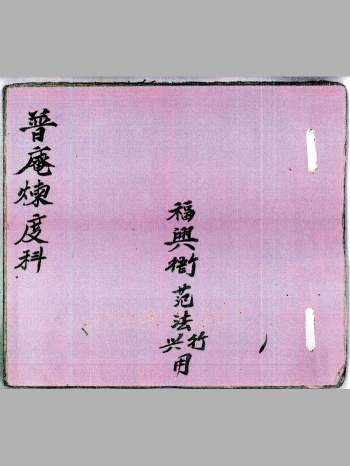 普庵煉度科
福興衙范法行兴用